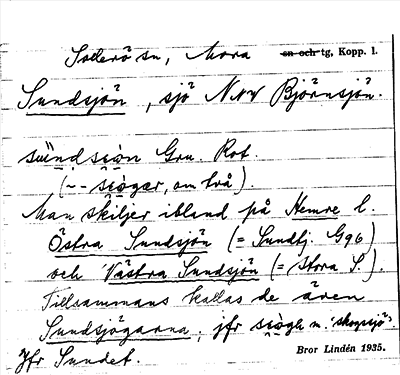 Sollerö sn, Mora sn och tg, Kopp. l.
Sundsjön, sjö NNV Björnsjön.
sùndsiòn Gru. Rot.
(~ - siògær, om två).
Man skiljer ibland på Hemre l.
Östra Sundsjön (= Sundtj. G96)
och Västra Sundsjön (= Stora S.).
Tillsammans kallas de även
Sundsjögarna, jfr siògh m. 'skogssjö'.
Jfr Sundet.
Bror Lindén 1935.